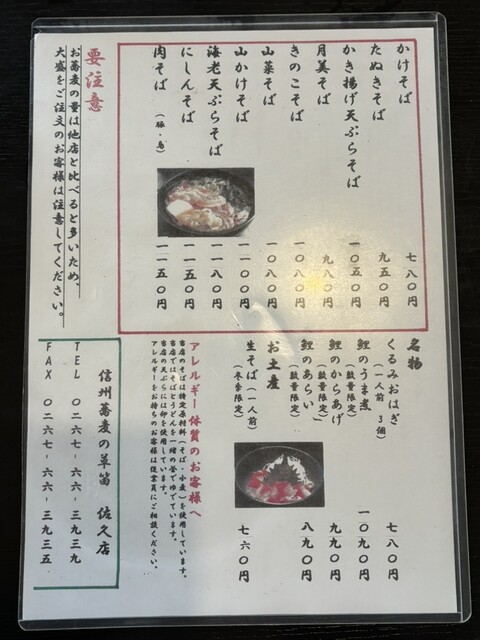 かけそば 七八〇円
たぬきそば 九五〇円
かき揚げ天ぷらそば 一〇五〇円
月美そば 九八〇円
きのこそば 一〇八〇円
山菜そば 一〇八〇円
山かけそば 一一〇〇円
海老天ぷらそば 一一八〇円
にしんそば 一一五〇円
肉そば (豚・鳥) 一一五〇円
要注意
お蕎麦の量は他店と比べると多いため、
大盛をご注文のお客様は注意してください。
名物
くるみおはぎ 七八〇円
(一人前 3個)
鯉のうま煮 一〇九〇円
(数量限定)
鯉のからあげ 九九〇円
(数量限定)
鯉のあらい 八九〇円
(数量限定)
お土産
生そば (一人前) 七六〇円
(冬季限定)
アレルギー体質のお客様へ
当店のそばは特定原材料(そば・小麦)を使用しています。
当店ではそばとうどんを一緒の釜でゆでています。
当店の天ぷらには卵を使用しています。
アレルギーをお持ちのお客様は従業員にご相談ください。
信州蕎麦の草笛 佐久店
TEL 〇二六七-六六-三九三九
FAX 〇二六七-六六-三九三五